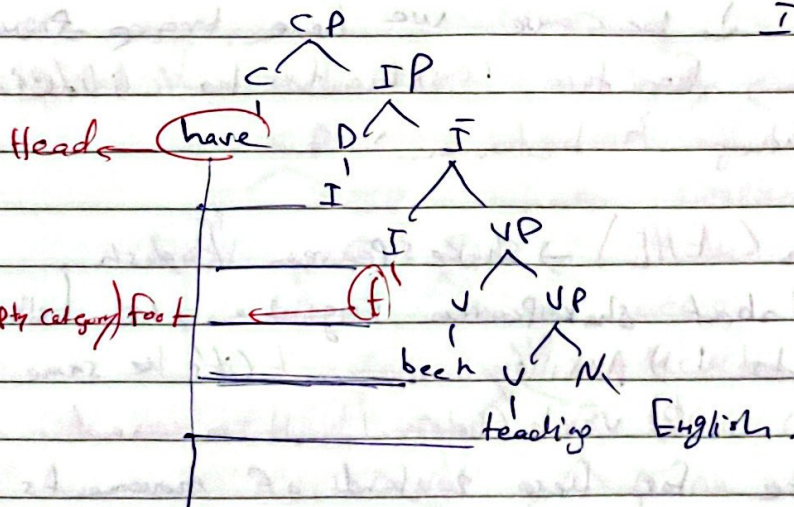 I
CP
C IP
Head have D Ī
I
I VP
pty category) foot t V VP
been V N
teading English